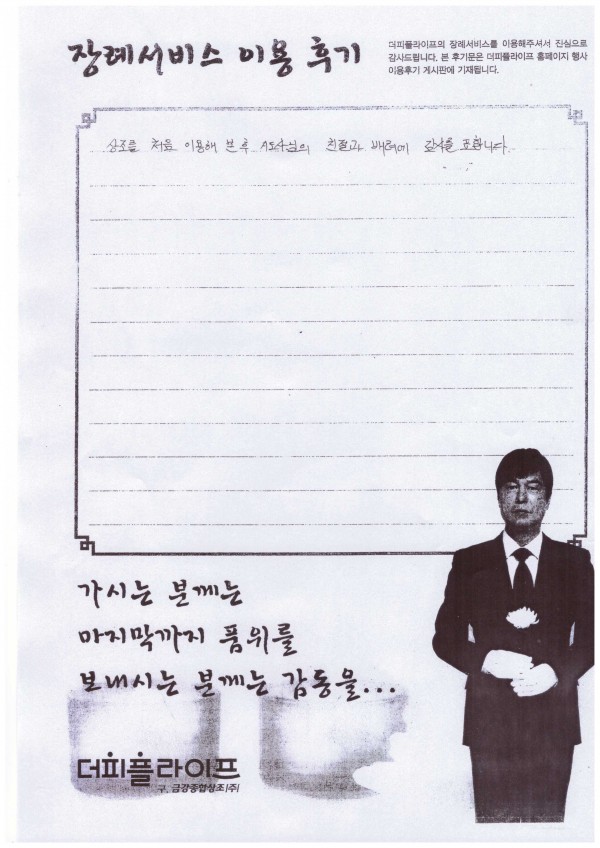 장례서비스 이용 후기
더피플라이프의 장례서비스를 이용해주셔서 진심으로
감사드립니다. 본 후기문은 더피플라이프 홈페이지 행사
이용후기 게시판에 기재됩니다.
상조를 처음 이용해 본 후 지도사님의 친절과 배려에 감사를 표합니다.
가시는 분께는
마지막까지 품위를
보내시는 분께는 감동을...
더피플라이프
구. 금강종합상조(주)